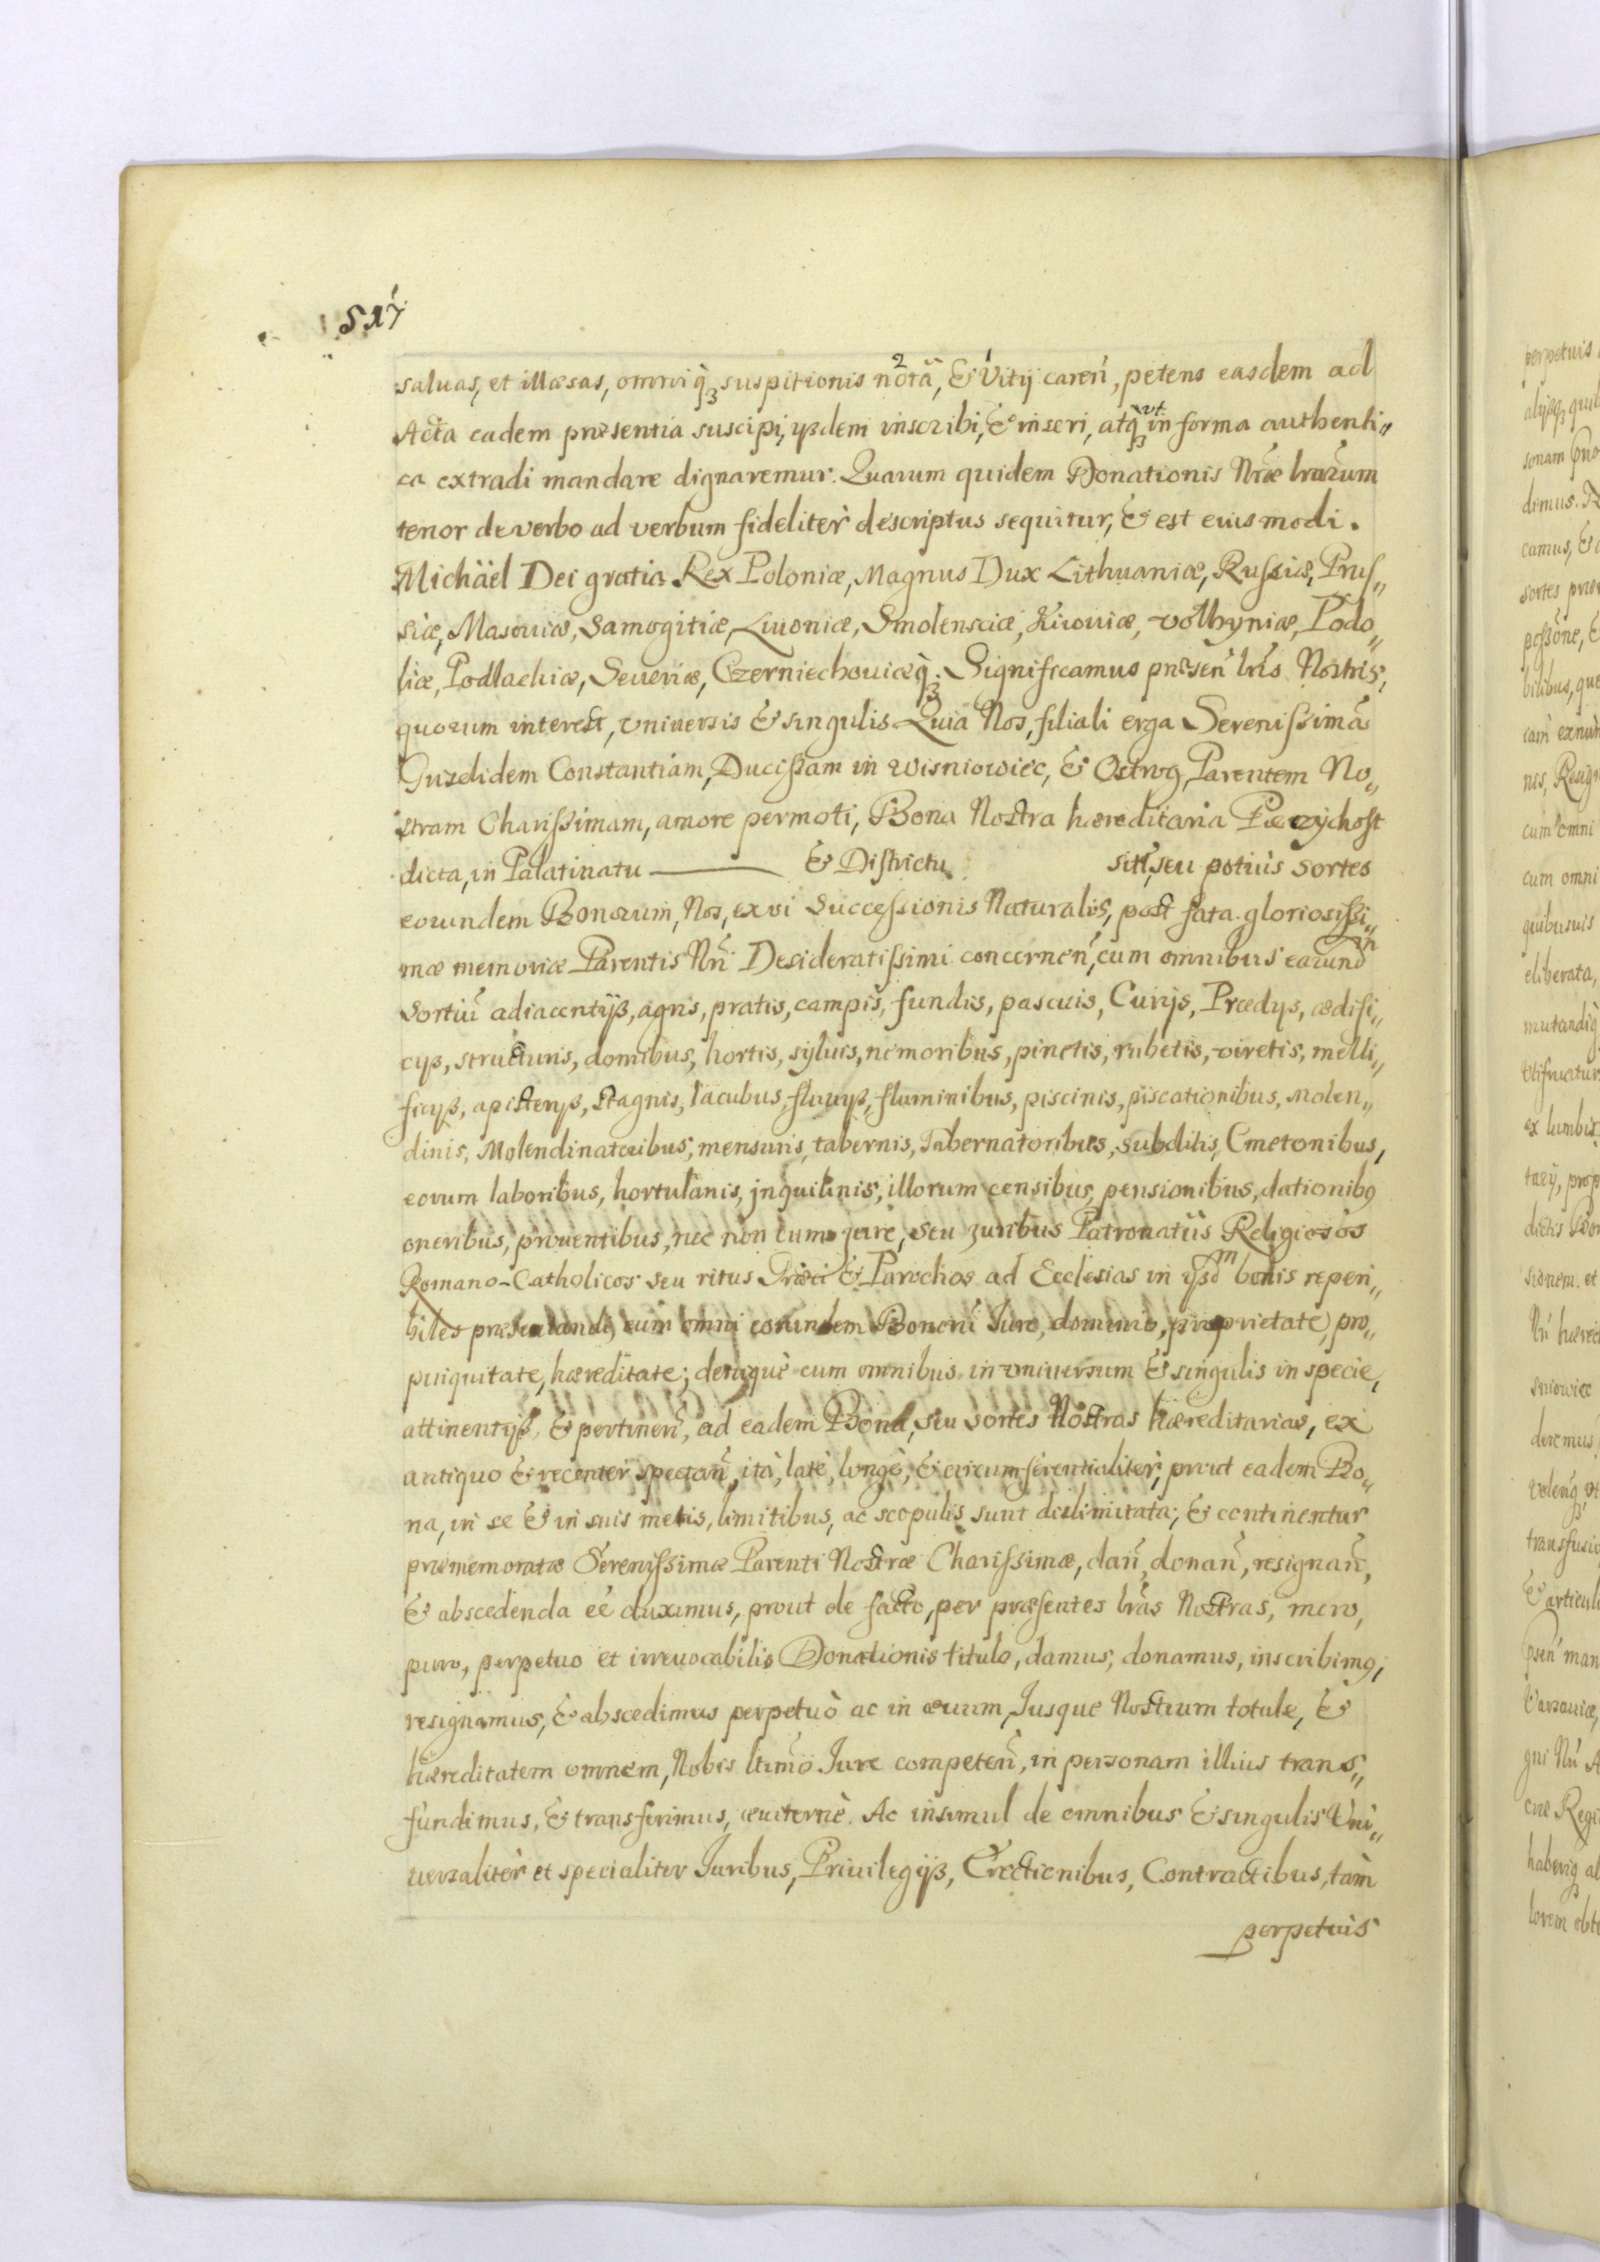 517
saluas, et illæsas, omniq́ꝫ suspitionis notã, & Vitij careñ, petens easdem ad
Acta eadem præsentia suscipi, ijsdem inscribi, & inseri, atq́ꝫ vt in forma authenti„
ca extradi mandare dignaremur. Quarum quidem Donationis Nr̃æ lrarũm
tenor de verbo ad verbum fideliter̀ descriptus sequitur, & est eiusmodi.
Michäel Dei gratia Rex Poloniæ, Magnus Dux Lithuaniæ, Russiæ, Prus„
siæ, Masouiæ, Samogitiæ, Liuoniæ, Smolensciæ, Kiouiæ, Volhyniæ, Podo„
liæ, Podlachiæ, Seueriæ, Czerniechouiæq́ꝫ. Significamus præseñ lrĩs Nostris,
quorum interest, vniuersis & singulis Quia Nos, filiali erga Serenissimã
Grizelidem Constantiam, Ducissam in Wisniowiec, & Ostrog, Parentem No„
stram Charissimam, amore permoti, Bona Nostra hæreditaria Przychost
dicta, in Palatinatu ——— & Districtu sitã, seu potiùs sortes
eorundem Bonorum, Nos, ex vi Successionis Naturalis, post fata gloriosissi„
mæ memoriæ Parentis Nr̃i Desideratissimi concerneñ, cum omnibus earund
Sortiũ adiacentijs, agris, pratis, campis, fundis, pascuis, Curijs, Prædijs, ædifi„
cijs, structuris, domibus, hortis, syluis, nemoribus, pinetis, rubetis, viretis, melli„
ficijs, apisterijs, Stagnis, lacubus, fluuijs, fluminibus, piscinis, piscationibus, Molen„
dinis, Molendinatoribus, mensuris, tabernis, Tabernatoribus, subditis, Cmetonibus,
eorum laboribus, hortulanis, jnquilinis, illorum censibus, pensionibus, dationibꝰ
oneribus, prouentibus, nec non cum jure, seu juribus Patronatûs Religiosos
Romano-Catholicos seu ritus Græci & Parochos ad Ecclesias in ijsdm bonis reperi„
biles præsentandi, cum omni eorundem Bonorũ Iure, dominio, proprietate, pro„
pinquitate, hæreditate; denique cum omnibus in vniuersum & singulis in specie,
attinentijs, & pertineñ, ad eadem Bona, seu sortes Nostras hæreditarias, ex
antiquo & recenter spectañ, ità, latè, longè, & circumferentialiter, prout eadem Bo„
na, in se & in suis metis, limitibus, ac scopulis sunt dislimitata, & continentur
præmemoratæ Serenissimæ Parenti Nostræ Charissimæ, dañ, donañ, resignañ,
& abscedenda eẽ duximus, prout de facto, per præsentes lrãs Nostras, mero,
puro, perpetuo et irreuocabilis Donationis titulo, damus, donamus, inscribimꝰ,
resignamus, & abscedimus perpetuò ac in æuum, Jusque Nostrum totale, &
hæreditatem omnem, Nobis ltimõ Iure competeñ, in personam illius trans„
fundimus, & transferimus, æuiternè. Ac insimul de omnibus & singulis Vni„
uersaliter̀ et specialiter Iuribus, Priuilegijs, Erectionibus, Contractibus, tàm
perpetuis